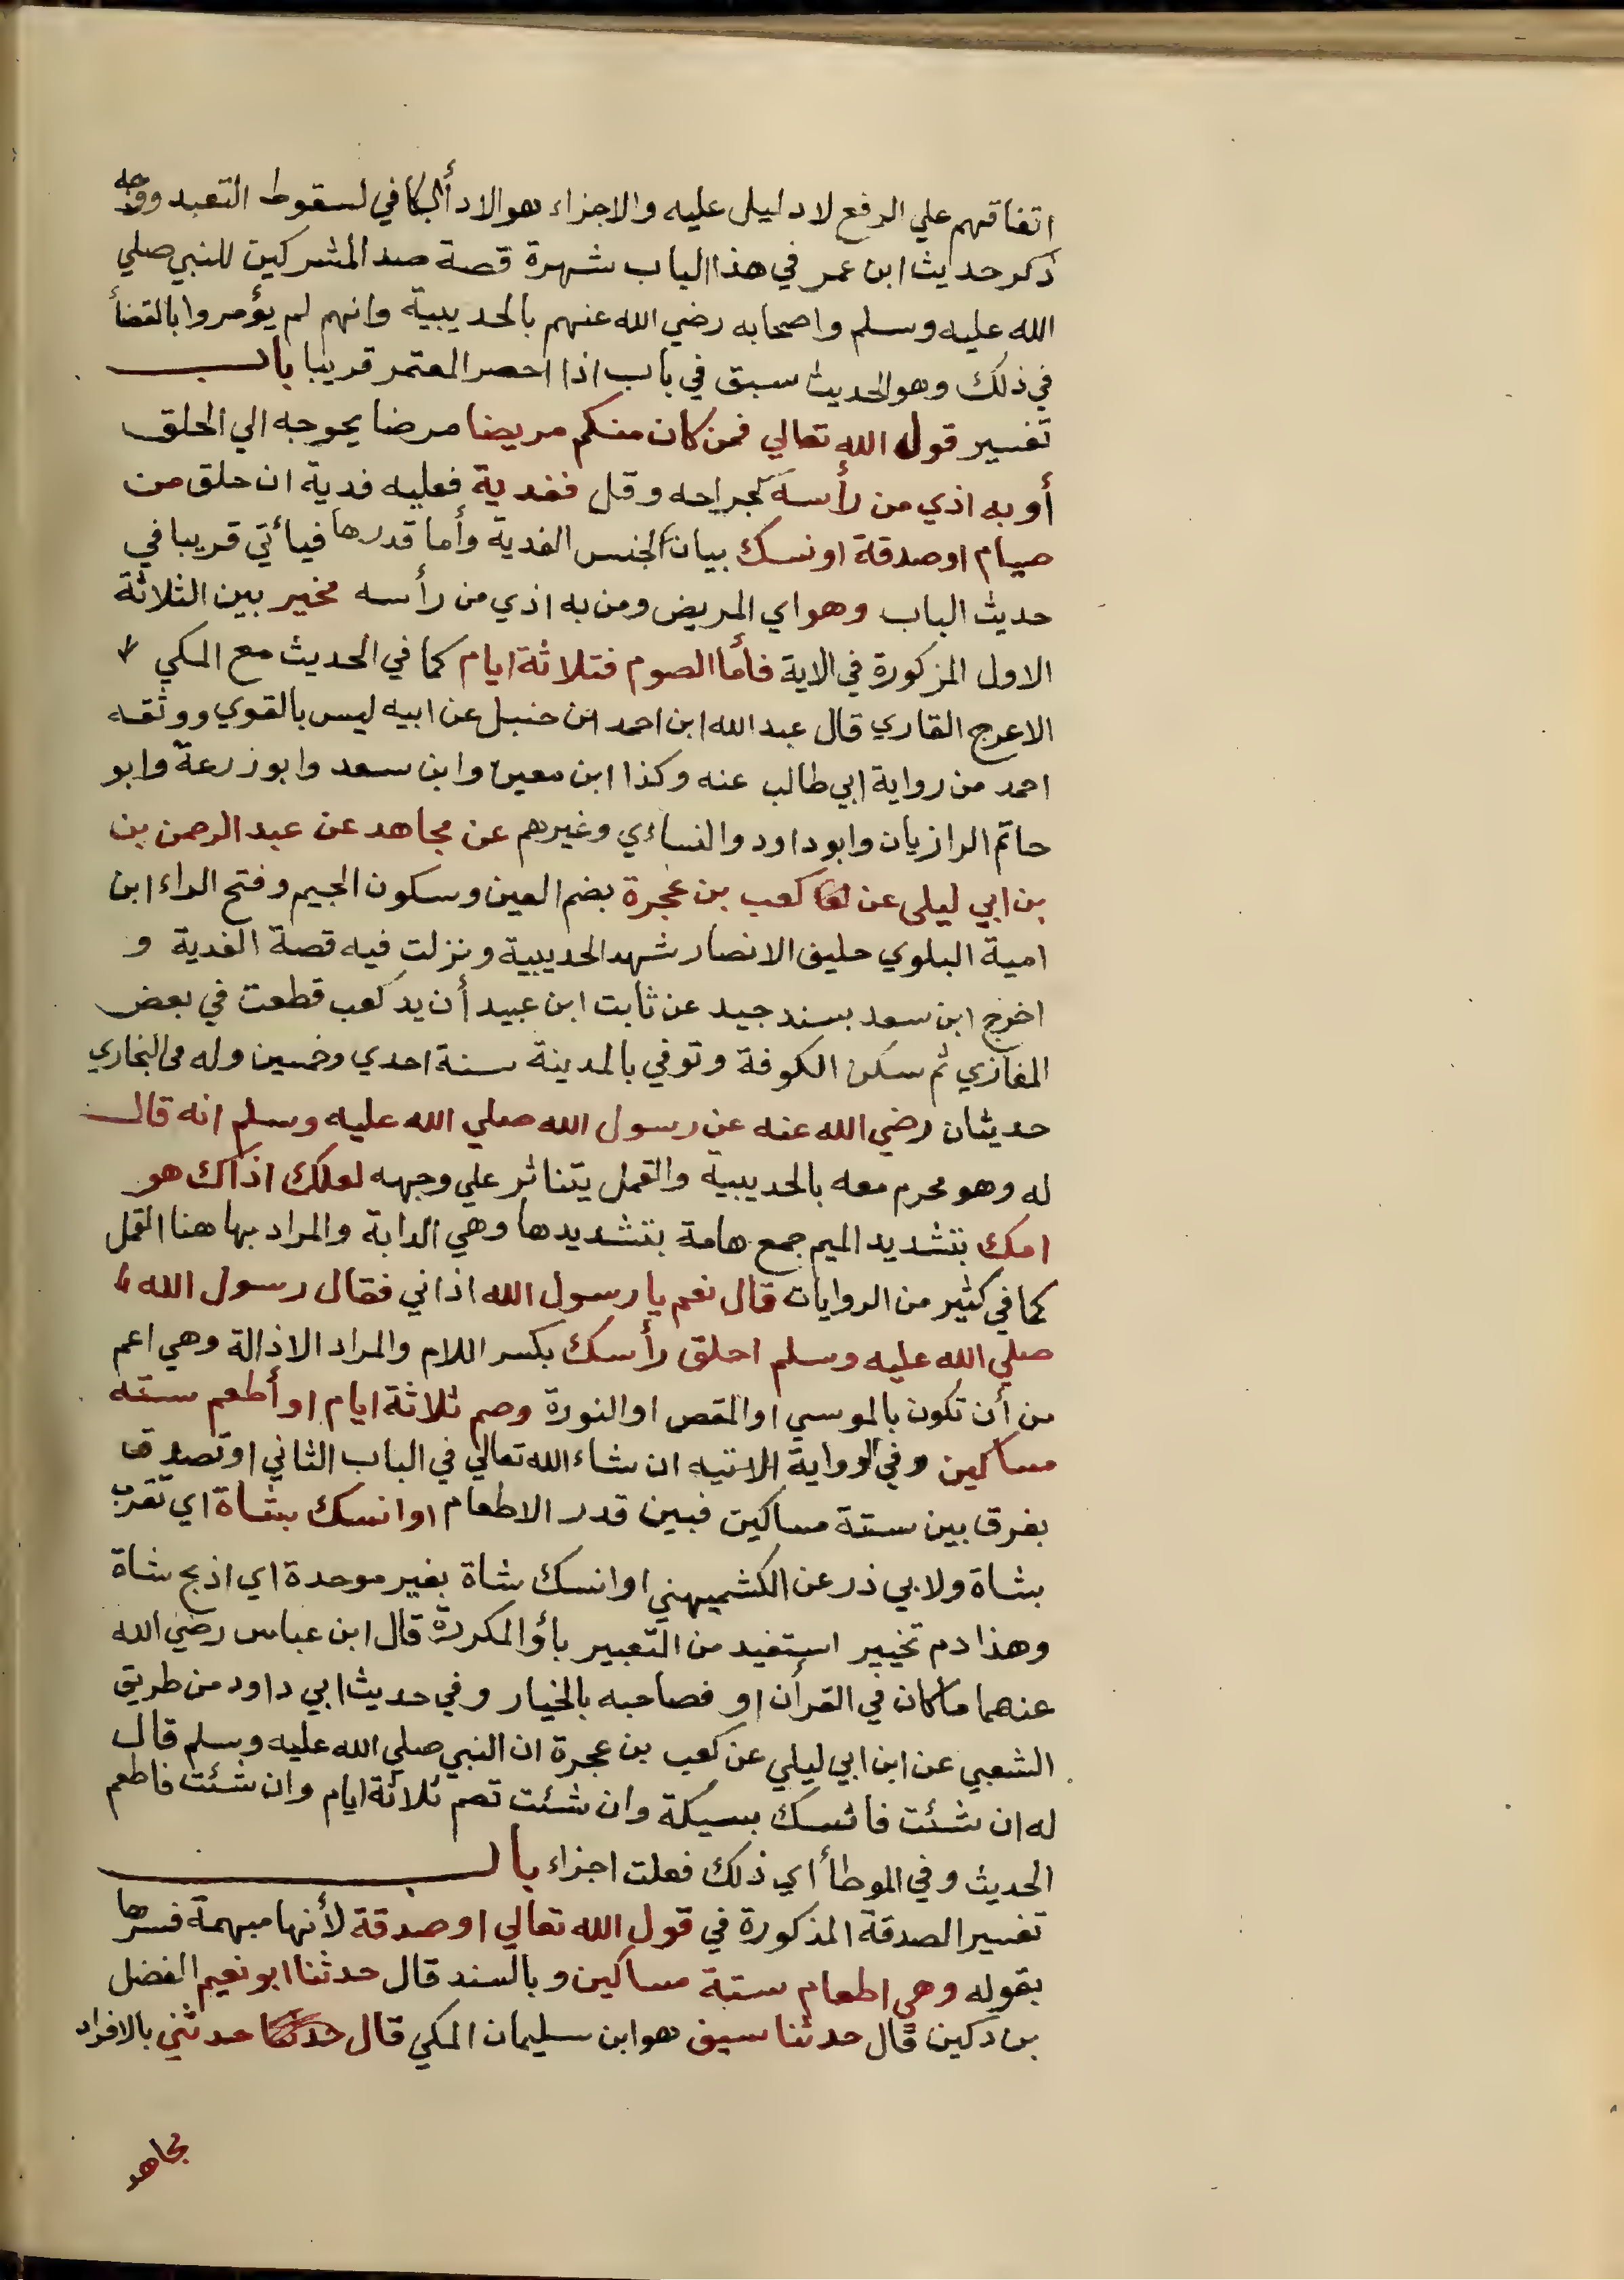 اتفاقهم علي الرفع لا دليل عليه والاجزاء هو الاداء الكافي لسقوط التعبد ووجه
ذكر حديث ابن عمر في هذا الباب شهرة قصة صد المشركين للنبي صلي
الله عليه وسلم واصحابه رضي الله عنهم بالحديبية وانهم لم يؤمروا بالقضأ
في ذلك وهو الحديث سبق في باب اذا احصر المعتمر قريبا باب
تفسير قول الله تعالي فمن كان منكم مريضا مرضا يحوجه الي الحلق
أو به اذي من رأسه كجراحه وقل ففدية فعليه فدية ان حلق من
صيام او صدقة او نسك بيان لجنس الفدية وأما قدرها فيأتي قريبا في
حديث الباب وهو اي المريض ومن به اذي من رأسه مخير بين الثلاثة
الاول المزكورة في الاية فأما الصوم فتلاثة ايام كما في الحديث مع المكي
الاعرج القاري قال عبد الله ابن احمد ابن حنبل عن ابيه ليس بالقوي ووثقه
احمد من رواية ابي طالب عنه وكذا ابن معين وابن سعد وابو زرعة وابو
حاتم الرازيان وابو داود والنساءي وغيرهم عن مجاهد عن عبد الرحمن بن
بن ابي ليلى عن كعب بن عجرة بضم العين وسكون الجيم وفتح الراء ابن
امية البلوي حليف الانصار شهد الحديبية ونزلت فيه قصة الفدية و
اخرج ابن سعد بسند جيد عن ثابت ابن عبيد أن يد كعب قطعت في بعض
المغازي ثم سكن الكوفة وتوفي بالمدينة سنة احدي وخمسين وله في البخاري
حديثان رضي الله عنه عن رسول الله صلي الله عليه وسلم انه قال
له وهو محرم معه بالحديبية والقمل يتناثر علي وجهه لعلك اذاك هو
امك بتشديد الميم جمع هامة بتشديدها وهي الدابة والمراد بها هنا القمل
كما في كثير من الروايات قال نعم يا رسول الله اذاني فقال رسول الله
صلي الله عليه وسلم احلق رأسك بكسر اللام والمراد الاذالة وهي اعم
من أن تكون بالموسي او المقص او النورة وصم ثلاثة ايام او أطعم ستة
مساكين وفي الرواية الاتيه ان شاء الله تعالي في الباب الثاني او تصدق
بفرق بين ستة مساكين فبين قدر الاطعام او انسك بشاة اي تقرب
بشاة ولابي ذر عن الكشميهني او انسك شاة بغير موحدة اي اذبح شاة
وهذا دم تخيير استفيد من التعبير بأو المكررة قال ابن عباس رضي الله
عنهما ما كان في القرأن او فصاحبه بالخيار وفي حديث ابي داود من طريق
الشعبي عن ابن ابي ليلي عن كعب بن عجرة ان النبي صلي الله عليه وسلم قال
له ان شئت فانسك بسيكة وان شئت تصم ثلاثة ايام وان شئت فاطعم
الحديث وفي الموطأ اي ذلك فعلت اجزاء باب
تفسير الصدقة المذكورة في قول الله تعالي او صدقة لأنها مبهمة فسرها
بقوله وهي اطعام ستة مساكين وبالسند قال حدثنا ابو نعيم الفضل
بن دكين قال حدثنا سيف هو ابن سليمان المكي قال حدثني بالافراد
مجاهد